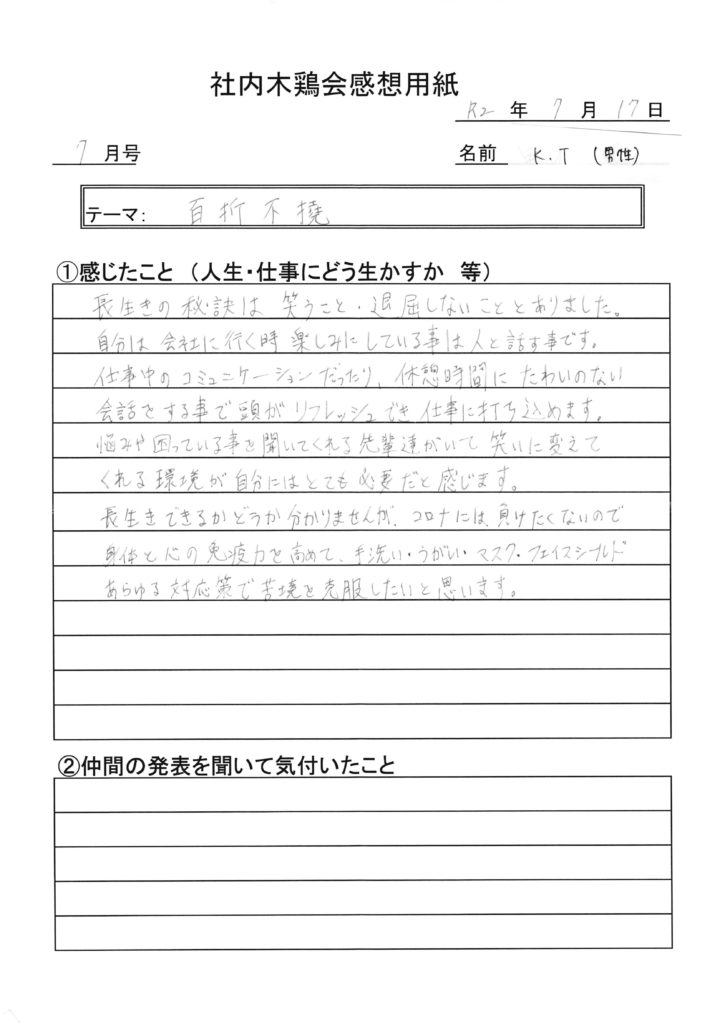 社内木鶏会感想用紙
R2 年 7 月 17 日
7 月号
名前 K.T (男性)
テーマ： 百折不撓
①感じたこと （人生・仕事にどう生かすか 等）
長生きの秘訣は 笑うこと・退屈しないこととありました。
自分は会社に行く時 楽しみにしている事は人と話す事です。
仕事中のコミュニケーションだったり、休憩時間に たわいのない
会話をする事で頭がリフレッシュでき仕事に打ち込めます。
悩みや困っている事を聞いてくれる先輩達がいて笑いに変えて
くれる環境が自分にはとても必要だと感じます。
長生きできるかどうか分かりませんが、コロナには、負けたくないので
身体と心の免疫力を高めて、手洗い・うがい・マスク・フェイスシールド
あらゆる対応策で苦境を克服したいと思います。
②仲間の発表を聞いて気付いたこと